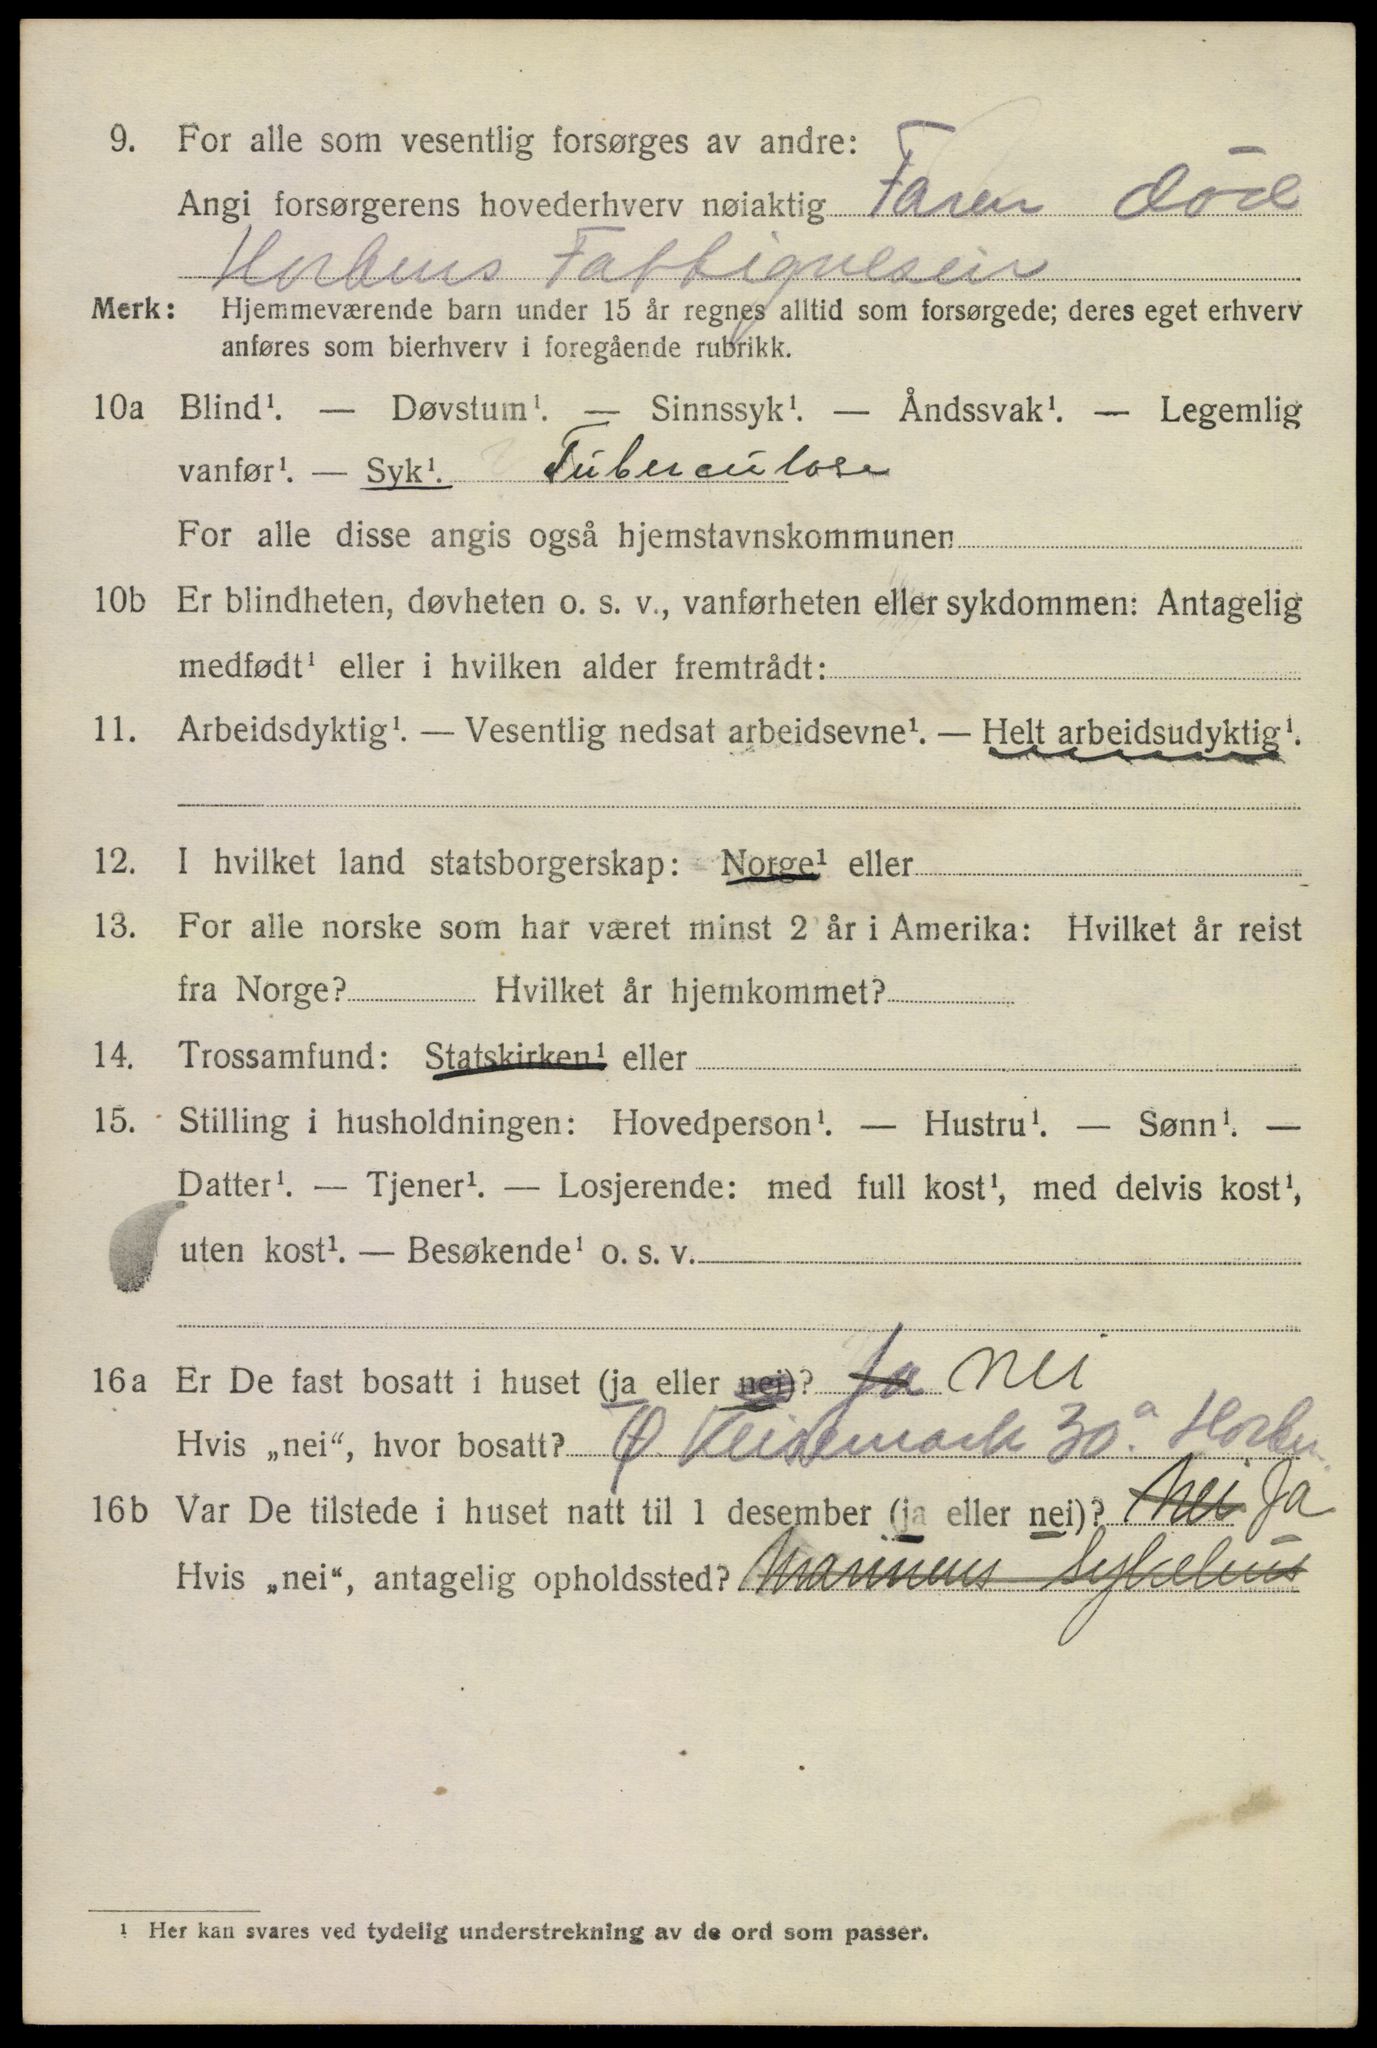 9. For alle som vesentlig forsørges av andre:
Angi forsørgerens hovederhverv nøiaktig Faren død
Hortens Fattigvesen
Merk: Hjemmeværende barn under 15 år regnes alltid som forsørgede; deres eget erhverv
anføres som bierhverv i foregående rubrikk.
10a Blind¹. — Døvstum¹. — Sinnssyk¹. — Åndssvak¹. — Legemlig
vanfør¹. — Syk¹. Tuberculose
For alle disse angis også hjemstavnskommunen
10b Er blindheten, døvheten o. s. v., vanførheten eller sykdommen: Antagelig
medfødt¹ eller i hvilken alder fremtrådt:
11. Arbeidsdyktig¹. — Vesentlig nedsat arbeidsevne¹. — Helt arbeidsudyktig¹.
12. I hvilket land statsborgerskap: Norge¹ eller
13. For alle norske som har været minst 2 år i Amerika: Hvilket år reist
fra Norge? Hvilket år hjemkommet?
14. Trossamfund: Statskirken¹ eller
15. Stilling i husholdningen: Hovedperson¹. — Hustru¹. — Sønn¹. —
Datter¹. — Tjener¹. — Losjerende: med full kost¹, med delvis kost¹,
uten kost¹. — Besøkende¹ o. s. v.
16a Er De fast bosatt i huset (ja eller nei)? Ja nei
Hvis „nei“, hvor bosatt? Ø 30.a Horten
16b Var De tilstede i huset natt til 1 desember (ja eller nei)? Nei Ja
Hvis „nei“, antagelig opholdssted? Marinens Sykehus
¹ Her kan svares ved tydelig understrekning av de ord som passer.